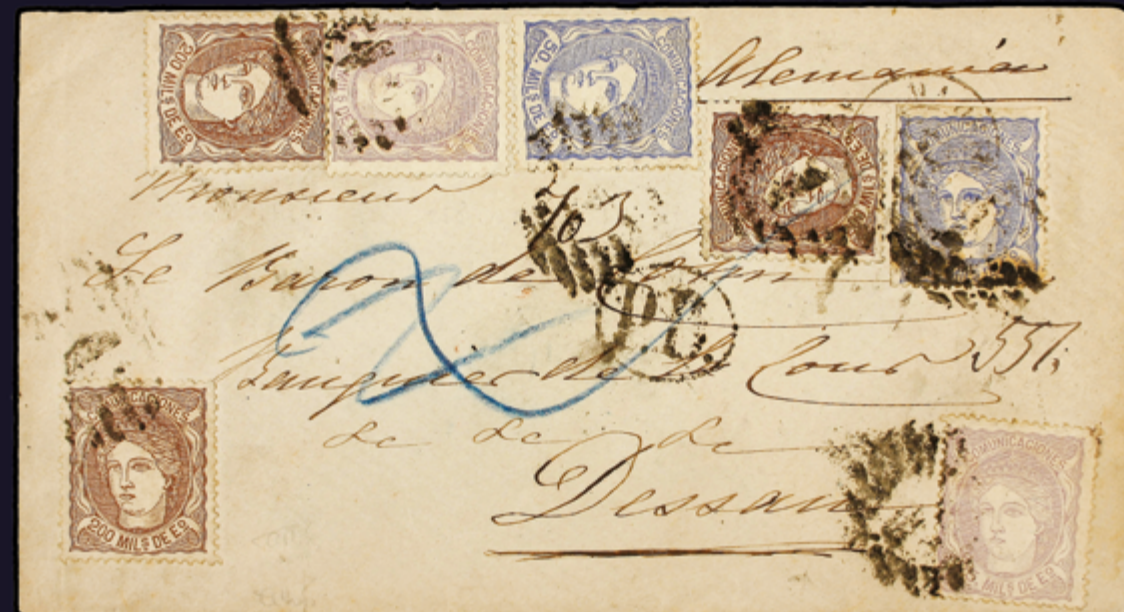 COMUNICACIONES 200 MILS DE EO
COMUNICACIONES
COMUNICACIONES 50. MILS DE EO
Alemania
COMUNICACIONES MILS DE EO
COMUNICACIONES
Monsieur
703
Le Baron de Cohn
P.D.
Banquier de la Cour 551.
de de de
Dessau
COMUNICACIONES
200 MILS DE EO
COMUNICACIONES
MILS DE EO